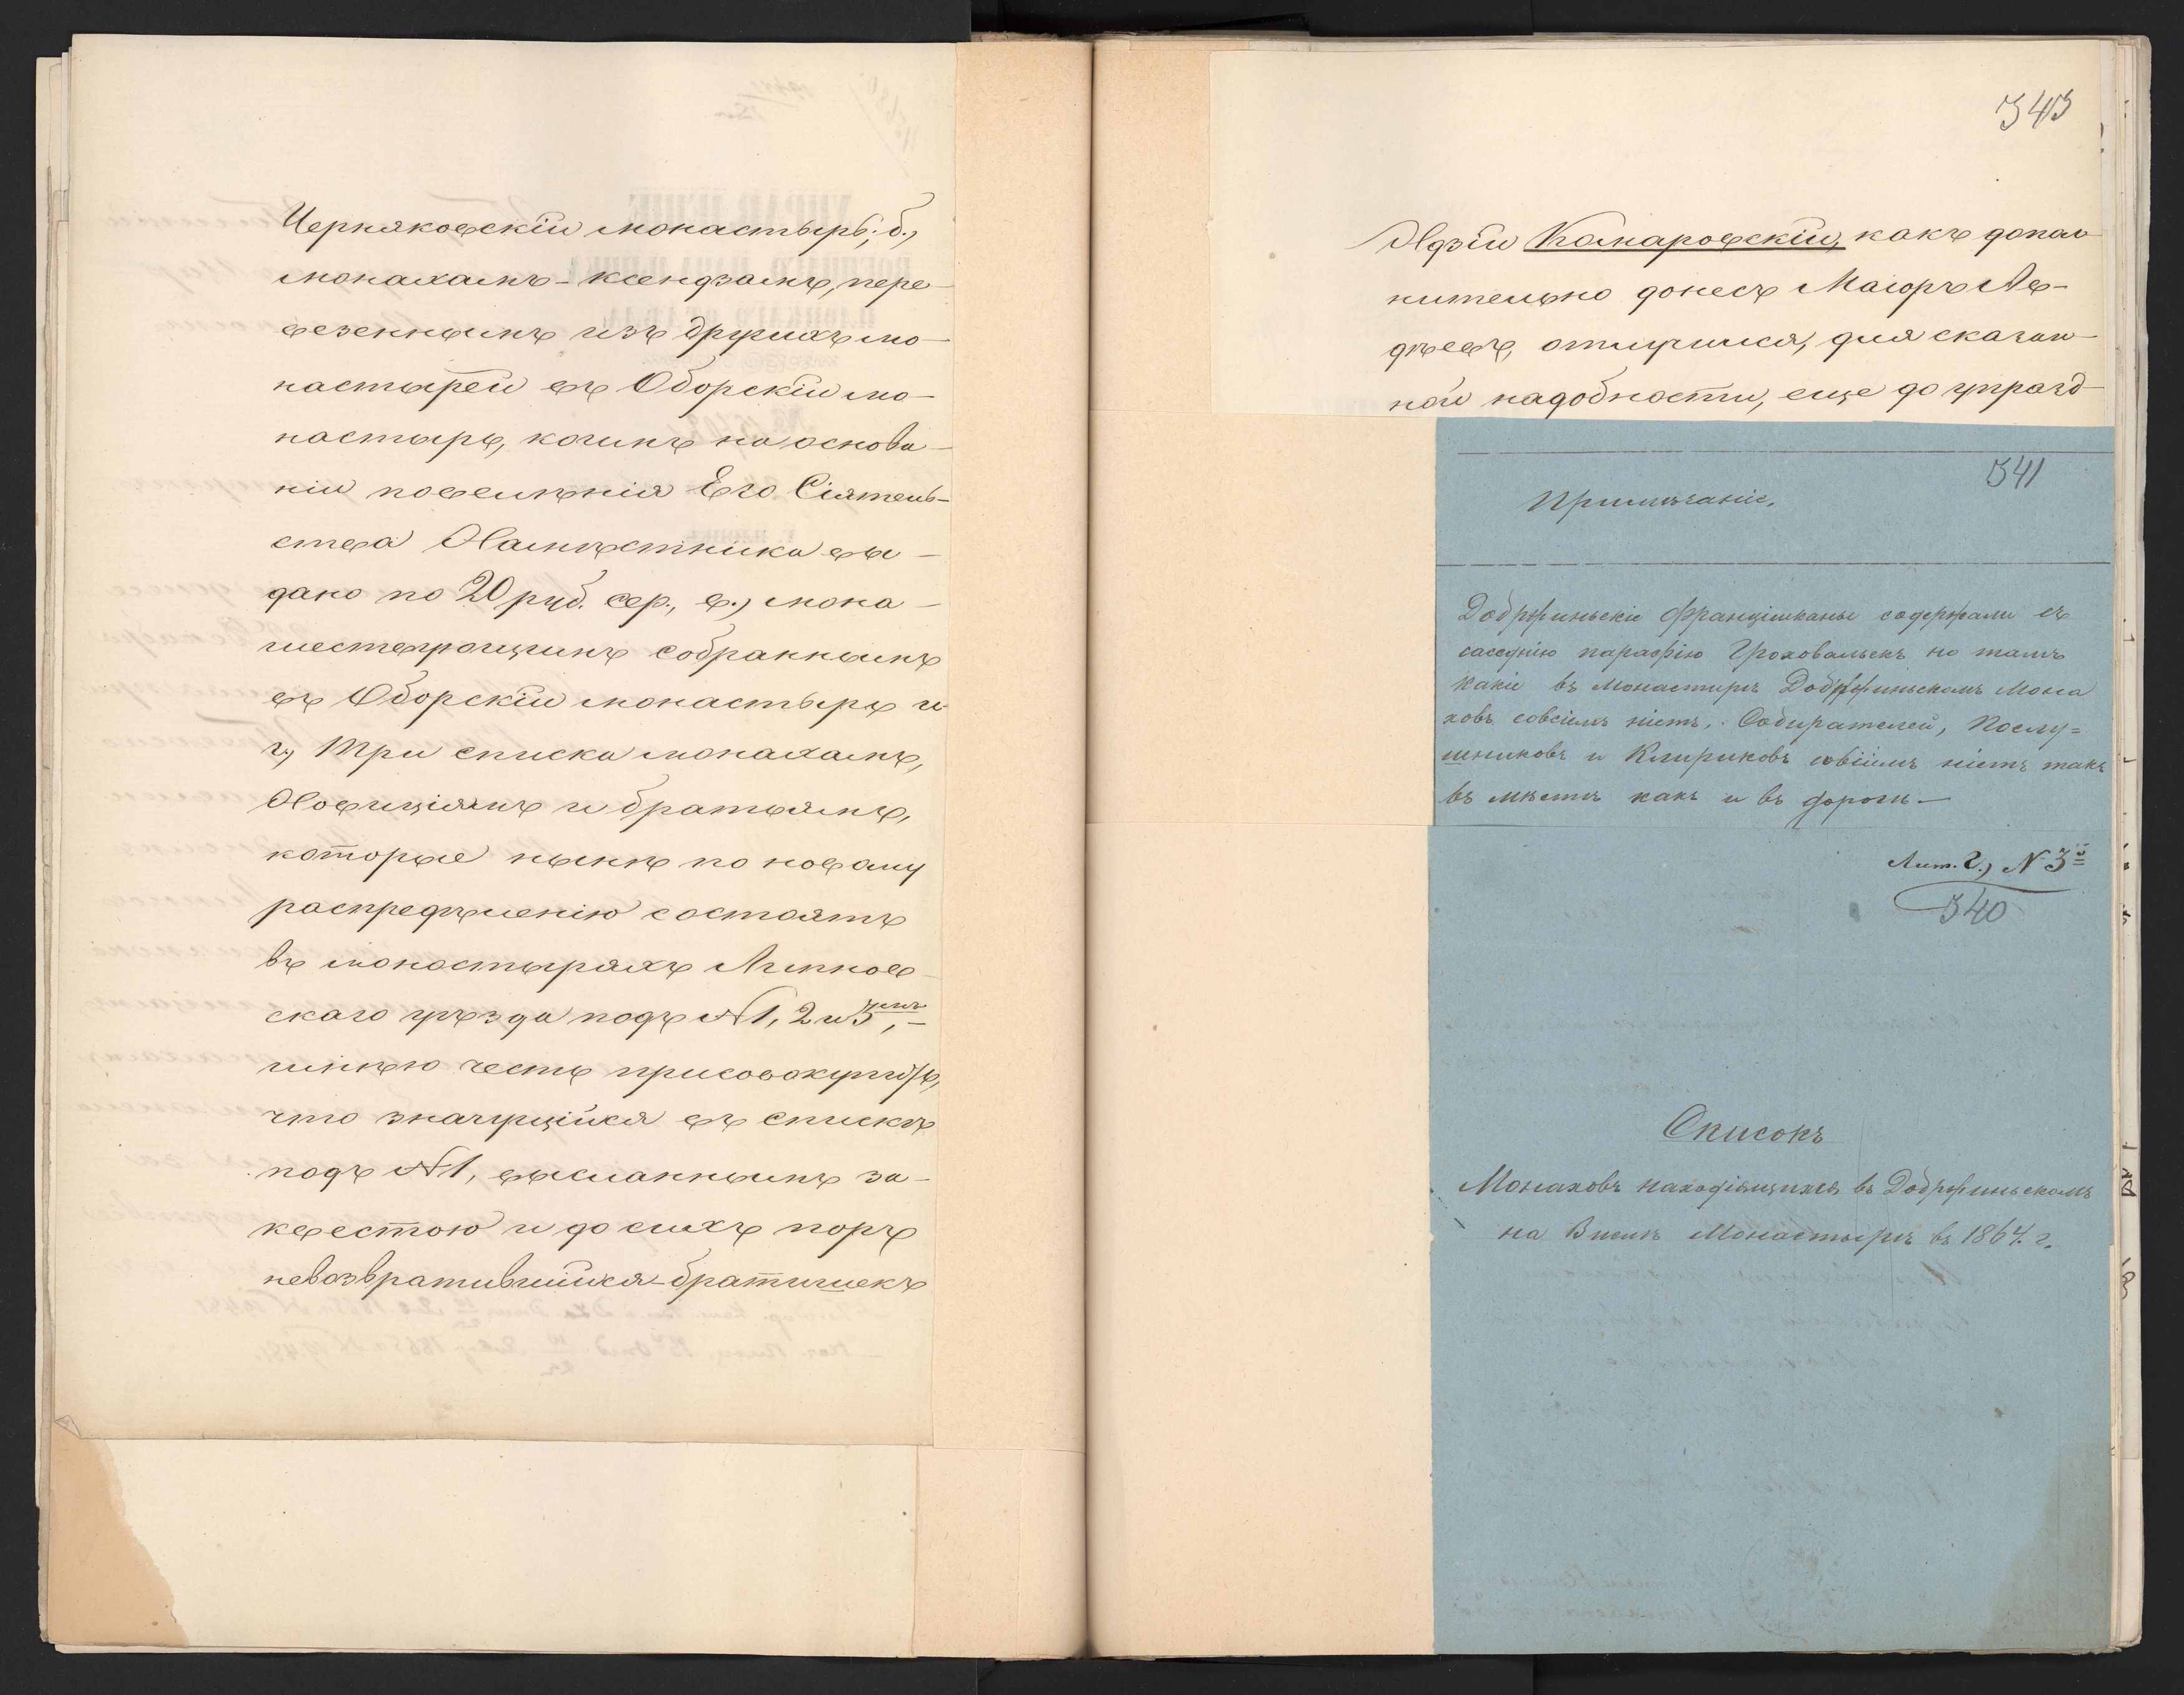 Черняковскій монастырь; б.,
монахамъ-ксендзамъ, пере-
везеннымъ изъ другихъ мо-
настырей въ Оборскій мо-
настырь, коимъ на основа-
ніи повелѣнія Его Сіятель-
ства Намѣстника вы-
дано по 20 руб. сер., в.) мона-
шествующимъ собраннымъ
въ Оборскій монастырь и
г.) Три списка монахамъ,
Новиціямъ и братьямъ,
которые нынѣ по новому
распредѣленію состоятъ
въ монастыряхъ Липнов-
скаго уѣзда подъ № 1, 2 и 3мъ, -
имѣю честь присовокупить,
что значущійся въ спискѣ
подъ № 1, высланнымъ за
квестою и до сихъ поръ
невозвратившійся братишекъ
343
Идзій Комаровскій, какъ допол-
нительно донесъ Маіоръ Ле-
дѣевъ, отлучился, для сказан-
ной надобности, еще до упразд-
341
Примѣчаніе.
Добржиньскіе францишканы содержали съ
соседнію парафію Гроховальскъ но тамъ
какіе въ Монастирѣ Добржиньскомъ Мона
ховъ совсіемъ ніетъ. Собирателей, Послу=
шниковъ и Клириковъ совсіемъ ніетъ такъ
въ мѣстѣ какъ и въ дорогѣ —
Лит. г.) № 3й
340
Списокъ
Монаховъ находіящихся въ Добржиньскомъ
на Вислѣ Монастырѣ въ 1864. г.